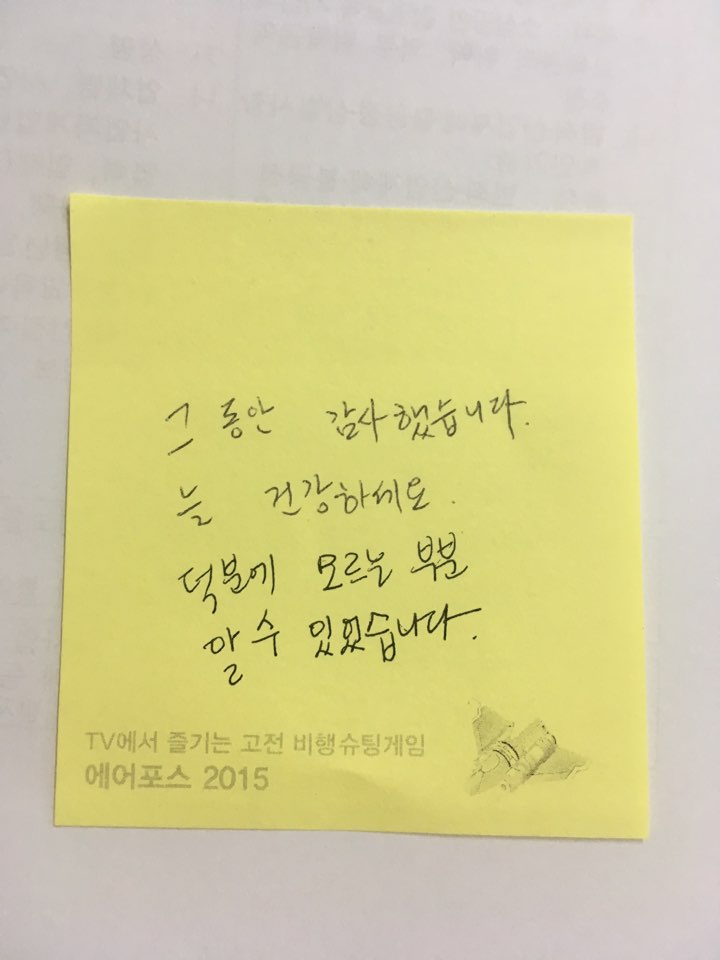 그 동안 감사했습니다.
늘 건강하세요.
덕분에 모르는 부분
알 수 있었습니다.
TV에서 즐기는 고전 비행슈팅게임
에어포스 2015